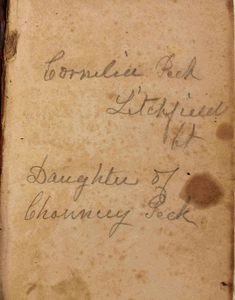 Cornelia Peck
Litchfield
Ct
Daughter of
Chauncey Peck